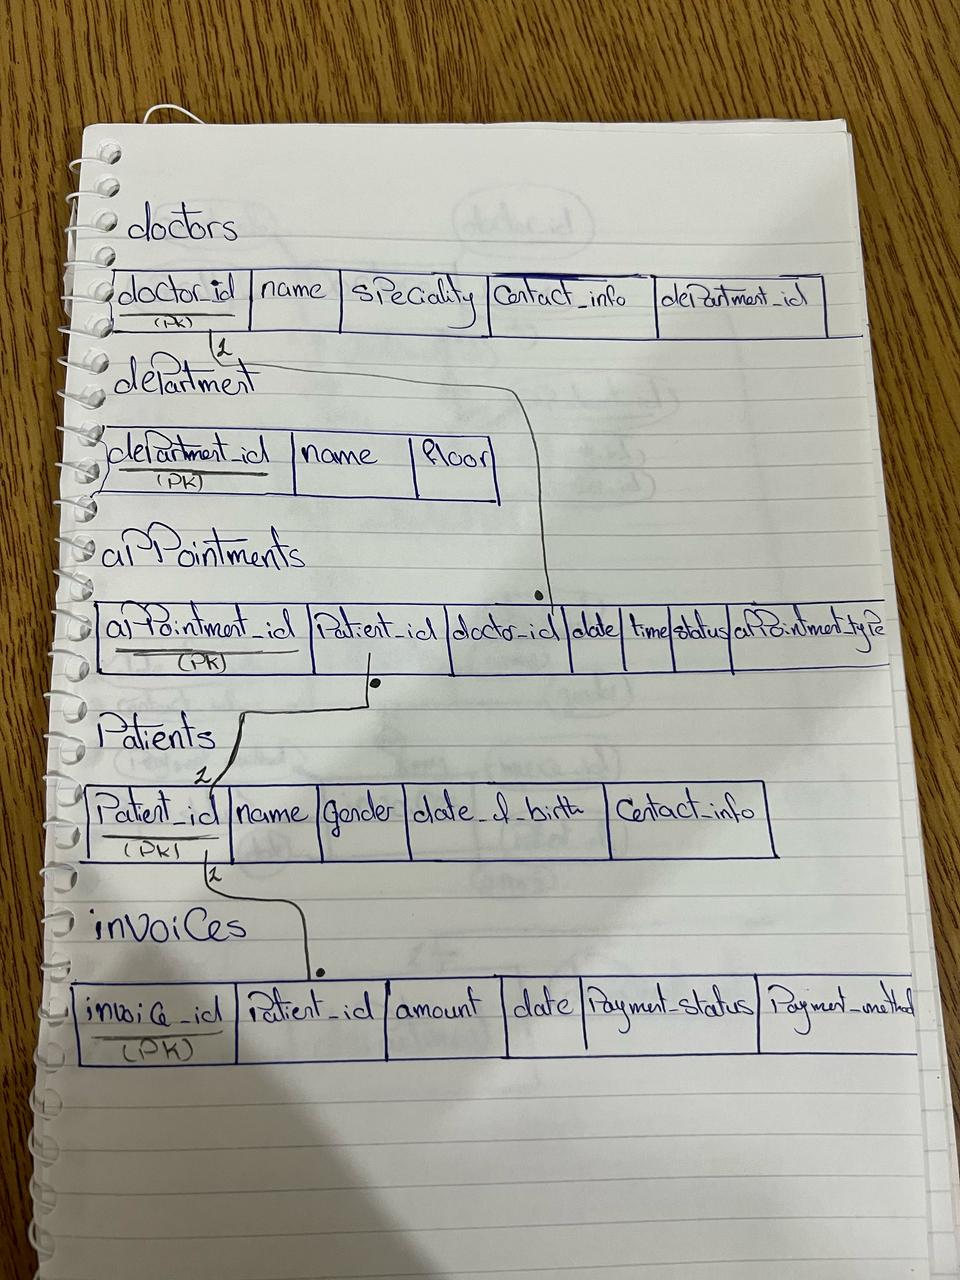 doctors
doctor_id name speciality Contact_info department_id
(PK)
1
department
department_id name floor
(PK)
appointments
appointment_id Patient_id doctor_id date time status appointment_type
(PK)
Patients
1
Patient_id name gender date_of_birth Contact_info
(PK)
1
invoices
invoice_id Patient_id amount date Payment_status Payment_method
(PK)